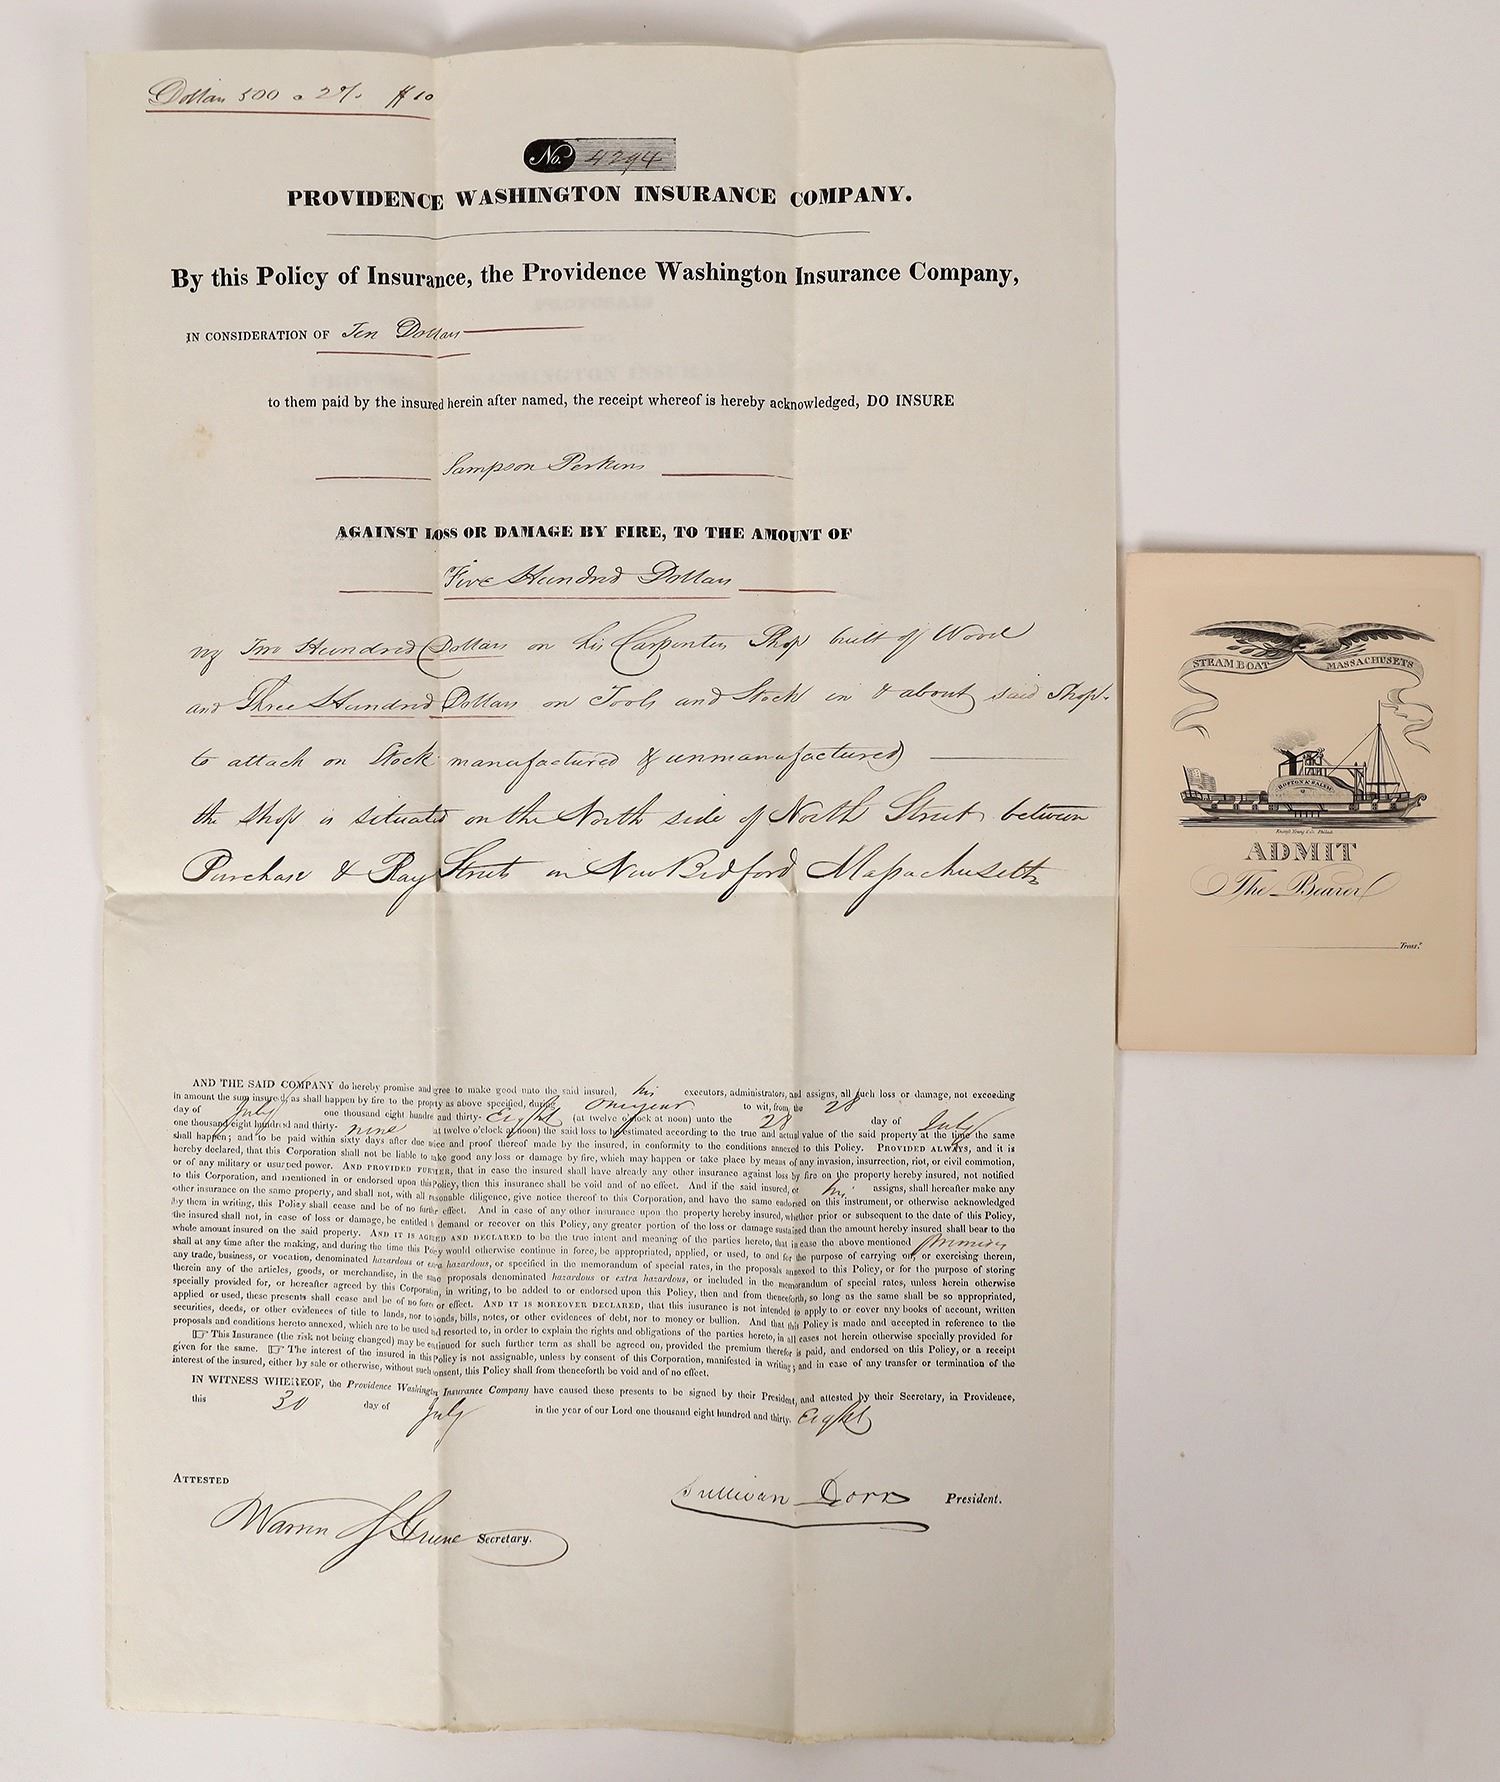 Dollars 500 a 2%. $10
No. 4294
PROVIDENCE WASHINGTON INSURANCE COMPANY.
By this Policy of Insurance, the Providence Washington Insurance Company,
IN CONSIDERATION OF Ten Dollars
to them paid by the insured herein after named, the receipt whereof is hereby acknowledged, DO INSURE
Sampson Perkins
AGAINST LOSS OR DAMAGE BY FIRE, TO THE AMOUNT OF
Five Hundred Dollars
viz Two Hundred Dollars on his Carpenters Shop built of Wood
and Three Hundred Dollars on Tools and Stock in & about said Shop.
to attach on Stock manufactured & unmanufactured
the Shop is situated on the North side of North Street between
Purchase & Ray Streets in New Bedford Massachusetts
AND THE SAID COMPANY do hereby promise and agree to make good unto the said insured, his executors, administrators, and assigns, all such loss or damage, not exceeding
in amount the sum insured, as shall happen by fire to the property as above specified, during one year to wit, from the 28
day of July one thousand eight hundred and thirty-Eight (at twelve o'clock at noon) unto the 28 day of July
one thousand eight hundred and thirty-nine at twelve o'clock at noon) the said loss to be estimated according to the true and actual value of the said property at the time the same
shall happen; and to be paid within sixty days after due notice and proof thereof made by the insured, in conformity to the conditions annexed to this Policy. PROVIDED ALWAYS, and it is
hereby declared, that this Corporation shall not be liable to make good any loss or damage by fire, which may happen or take place by means of any invasion, insurrection, riot, or civil commotion,
or of any military or usurped power. AND PROVIDED FURTHER, that in case the insured shall have already any other insurance against loss by fire on the property hereby insured, not notified
to this Corporation, and mentioned in or endorsed upon this Policy, then this insurance shall be void and of no effect. And if the said insured, or his assigns, shall hereafter make any
other insurance on the same property, and shall not, with all reasonable diligence, give notice thereof to this Corporation, and have the same endorsed on this instrument, or otherwise acknowledged
by them in writing, this Policy shall cease and be of no further effect. And in case of any other insurance upon the property hereby insured, whether prior or subsequent to the date of this Policy,
the insured shall not, in case of loss or damage, be entitled to demand or recover on this Policy, any greater portion of the loss or damage sustained than the amount hereby insured shall bear to the
whole amount insured on the said property. AND IT IS AGREED AND DECLARED to be the true intent and meaning of the parties hereto, that in case the above mentioned premises
shall at any time after the making, and during the time this Policy would otherwise continue in force, be appropriated, applied, or used, to and for the purpose of carrying on, or exercising therein,
any trade, business, or vocation, denominated hazardous or extra hazardous, or specified in the memorandum of special rates, in the proposals annexed to this Policy, or for the purpose of storing
therein any of the articles, goods, or merchandise, in the same proposals denominated hazardous or extra hazardous, or included in the memorandum of special rates, unless herein otherwise
specially provided for, or hereafter agreed by this Corporation, in writing, to be added to or endorsed upon this Policy, then and from thenceforth, so long as the same shall be so appropriated,
applied or used, these presents shall cease and be of no force or effect. AND IT IS MOREOVER DECLARED, that this insurance is not intended to apply to or cover any books of account, written
securities, deeds, or other evidences of title to lands, nor to bonds, bills, notes, or other evidences of debt, nor to money or bullion. And that this Policy is made and accepted in reference to the
proposals and conditions hereto annexed, which are to be used and resorted to, in order to explain the rights and obligations of the parties hereto, in all cases not herein otherwise specially provided for
☞ This Insurance (the risk not being changed) may be continued for such further term as shall be agreed on, provided the premium therefor is paid, and endorsed on this Policy, or a receipt
given for the same. ☞ The interest of the insured in this Policy is not assignable, unless by consent of this Corporation, manifested in writing; and in case of any transfer or termination of the
interest of the insured, either by sale or otherwise, without such consent, this Policy shall from thenceforth be void and of no effect.
IN WITNESS WHEREOF, the Providence Washington Insurance Company have caused these presents to be signed by their President, and attested by their Secretary, in Providence,
this 30 day of July in the year of our Lord one thousand eight hundred and thirty-Eight
ATTESTED
Sullivan Dorr President.
Warren S Greene Secretary.
STEAM BOAT MASSACHUSETS
BOSTON & SALEM
ADMIT
The Bearer
Treas.r